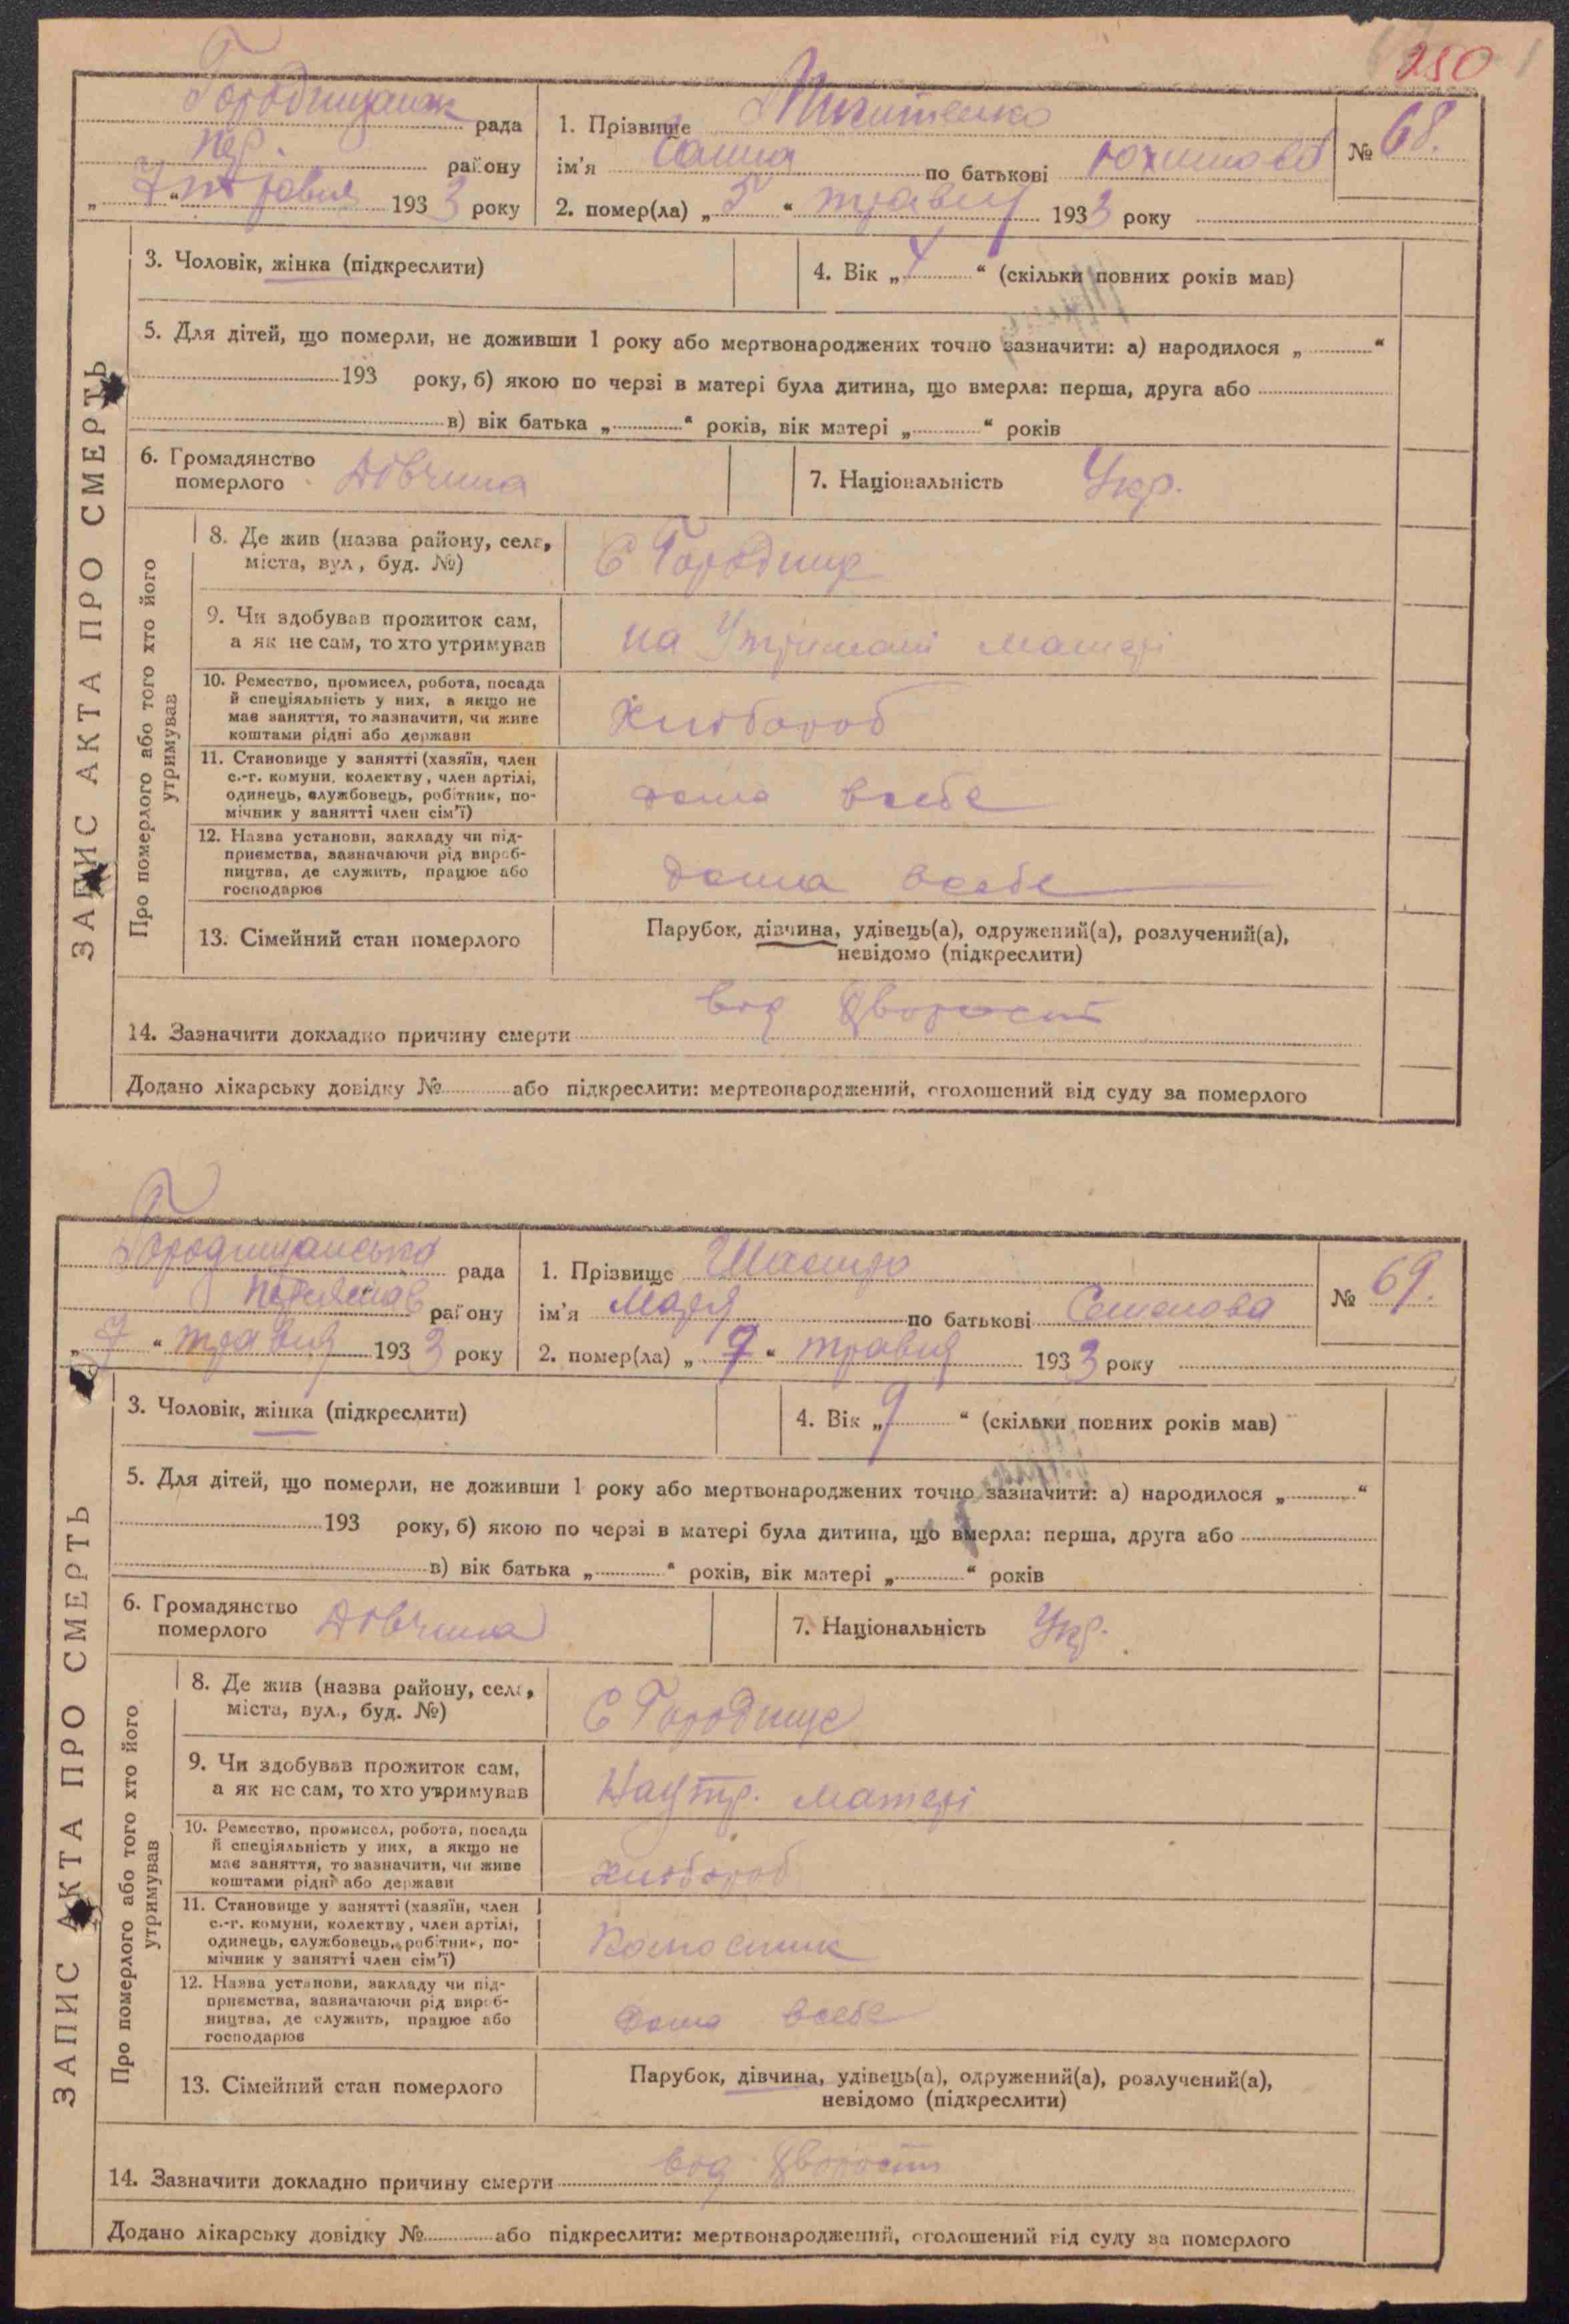 250
Городищанск рада
Пер. району
„ 7 “ травня 1933 року
1. Прізвище Микитенко
ім'я по батькові Юхимова
2. помер(ла) „ 5 “ травня 1933 року
№ 68.
ЗАПИС АКТА ПРО СМЕРТЬ
3. Чоловік, жінка (підкреслити)
4. Вік „ 4 “ (скільки повних років мав)
5. Для дітей, що померли, не доживши 1 року або мертвонароджених точно зазначити: а) народилося „ “
193 року, б) якою по черзі в матері була дитина, що вмерла: перша, друга або
в) вік батька „ “ років, вік матері „ “ років
6. Громадянство
померлого Дівчина
7. Національність Укр.
Про померлого або того хто його
утримував
8. Де жив (назва району, села,
міста, вул, буд. №)
С Городище
9. Чи здобував прожиток сам,
а як не сам, то хто утримував
на Утримані матері
10. Ремество, промисел, робота, посада
й спеціяльність у них, а якщо не
має заняття, то зазначити, чи живе
коштами рідні або держави
Хлібороб
11. Становище у занятті (хазяїн, член
с.-г. комуни, колектву, член артілі,
одинець, службовець, робітник, по-
мічник у занятті член сім'ї)
дома всебе
12. Назва установи, закладу чи під-
приємства, зазначаючи рід вироб-
ництва, де служить, працює або
господарює
дома всебе
13. Сімейний стан померлого
Парубок, дівчина, удівець(а), одружений(а), розлучений(а),
невідомо (підкреслити)
14. Зазначити докладно причину смерти
Додано лікарську довідку № або підкреслити: мертвонароджений, оголошений від суду за померлого
Городищанська рада
Переяслав району
„ 7 “ травня 1933 року
1. Прізвище
ім'я Марія по батькові Семенова
2. помер(ла) „ 7 “ травня 1933 року
№ 69.
ЗАПИС АКТА ПРО СМЕРТЬ
3. Чоловік, жінка (підкреслити)
4. Вік „ 9 “ (скільки повних років мав)
5. Для дітей, що померли, не доживши 1 року або мертвонароджених точно зазначити: а) народилося „ “
193 року, б) якою по черзі в матері була дитина, що вмерла: перша, друга або
в) вік батька „ “ років, вік матері „ “ років
6. Громадянство
померлого Дівчина
7. Національність Укр.
Про померлого або того хто його
утримував
8. Де жив (назва району, села,
міста, вул., буд. №)
С Городище
9. Чи здобував прожиток сам,
а як не сам, то хто утримував
На утр. матері
10. Ремество, промисел, робота, посада
й спеціяльність у них, а якщо не
має заняття, то зазначити, чи живе
коштами рідні або держави
хлібороб
11. Становище у занятті (хазяїн, член
с.-г. комуни, колектву, член артілі,
одинець, службовець, робітник, по-
мічник у занятті член сім'ї)
12. Назва установи, закладу чи під-
приємства, зазначаючи рід вироб-
ництва, де служить, працює або
господарює
дома всебе
13. Сімейний стан померлого
Парубок, дівчина, удівець(а), одружений(а), розлучений(а),
невідомо (підкреслити)
14. Зазначити докладно причину смерти
Додано лікарську довідку № або підкреслити: мертвонароджений, оголошений від суду за померлого